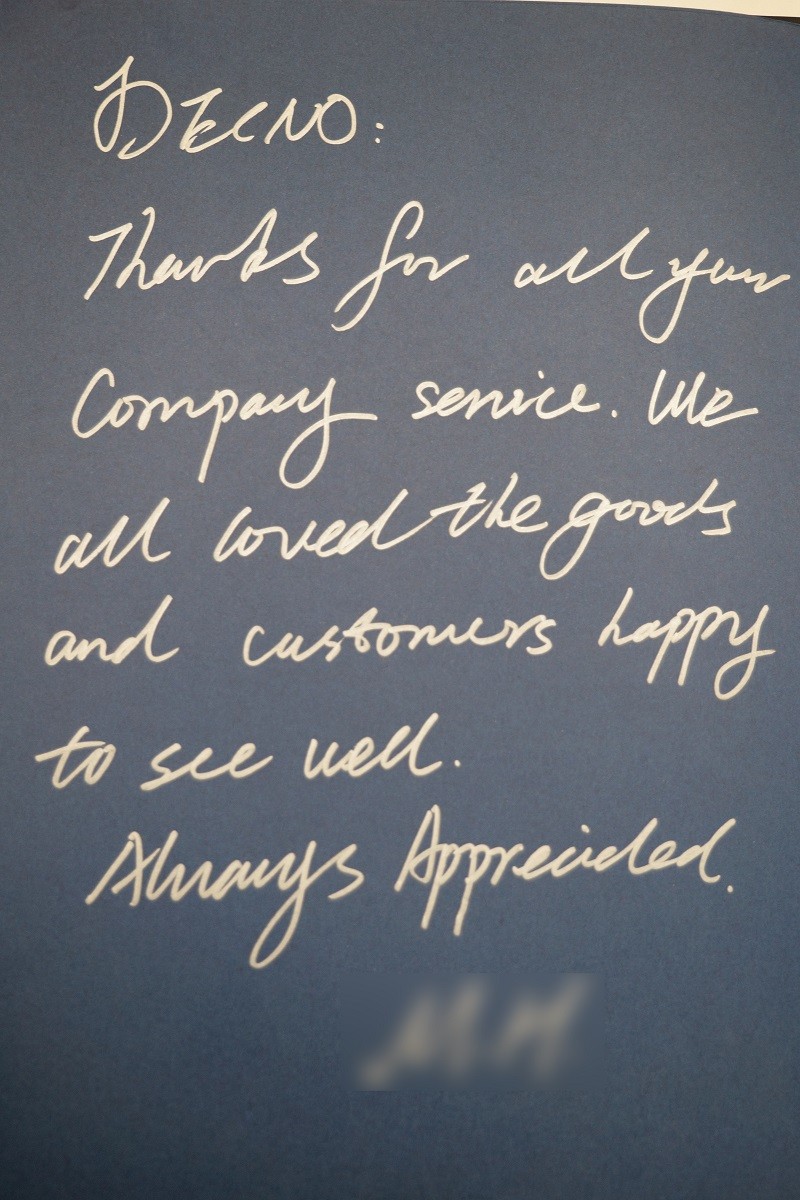 DECNO:
Thanks for all your
Company service. We
all loved the goods
and customers happy
to see well.
Always Appreciated.